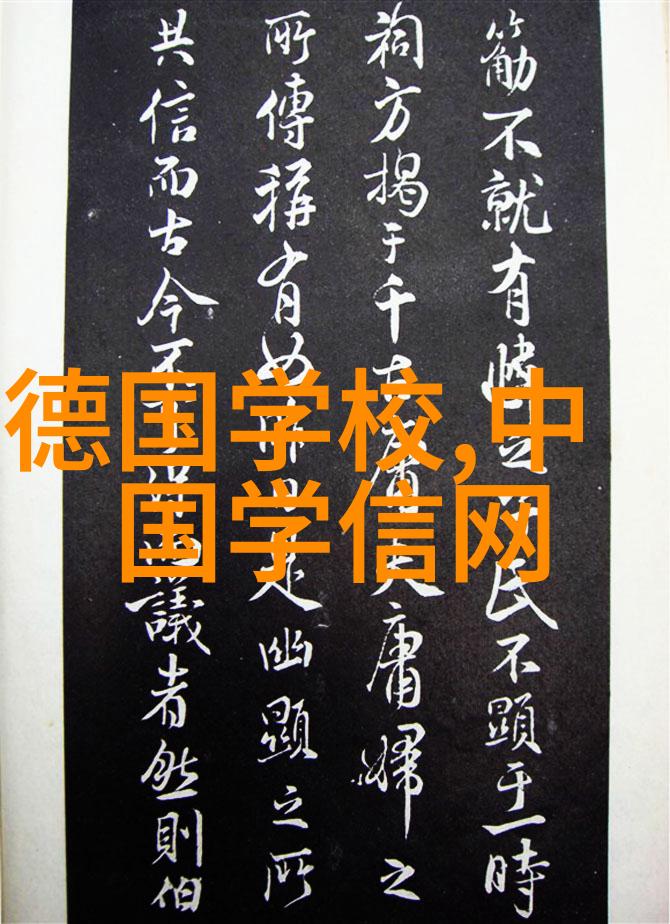 德国学校,中
国学信网
不就有民不顯于一時
祠方揭于千古庸夫庸婦之
所傳稱有如昨日是幽顯之所
共信而古今不議者然則伯